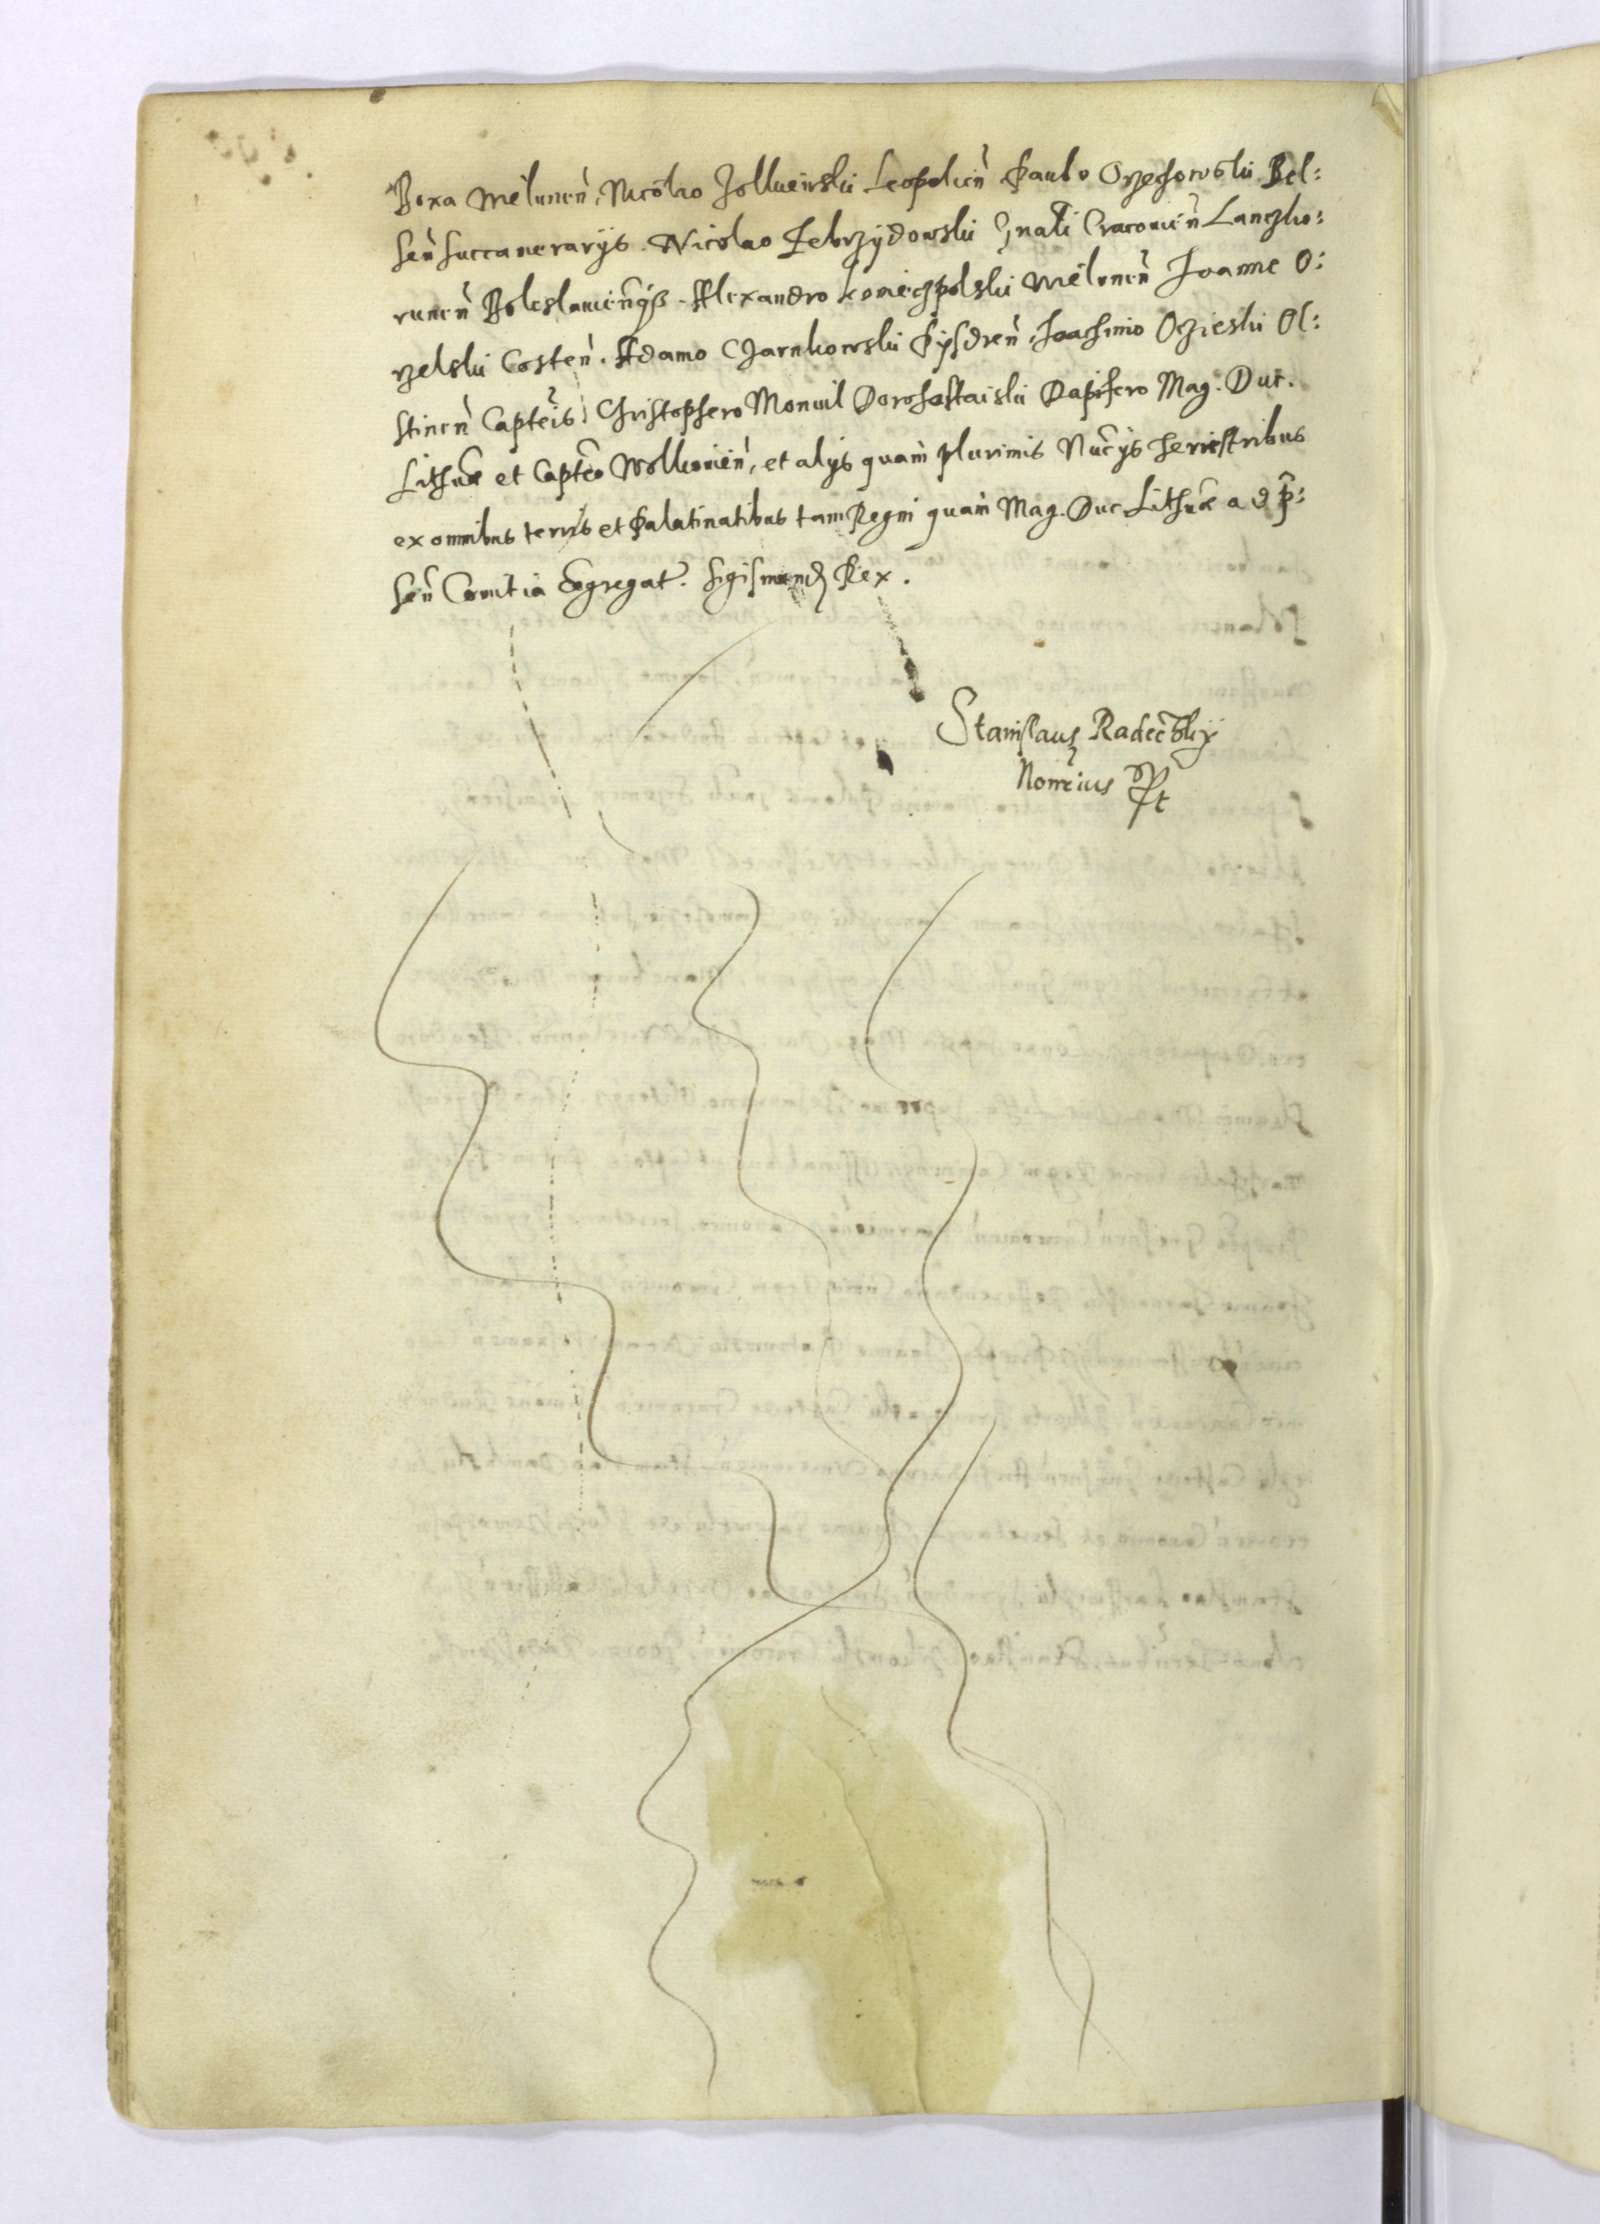 Boxa Mělunen̄, Nicolao Jolkuewski Leopolien̄ Paulo Orzechowski Bel:
sen̄ succamerarijs. Nicolao Zebrzydowski Gn̄ali Cracouien̄ Lanczko:
runen̄ Boleslauien̄qȝ. Alexandro Koniecpolski Wielunen̄ Joanne O:
rzelski Costen̄. Adamo Czarnkowski Pijsdren̄. Joachimo Ozieski Ol:
stinen̄ Capteīs Christophero Monuil Dorohostaiski Dapifero Mag. Duc.
Lithuae et Capteō Wolkouien̄, et alijs quam plurimis Nuncijs terrestribus
ex omnibus terris et Palatinatibus tam Regni quam Mag. Duc. Lithuae ad p̄:
sen̄ Comitia Congregat. Sigismundȝ Rex.
Stanislaus Radeczkij
Nomeius